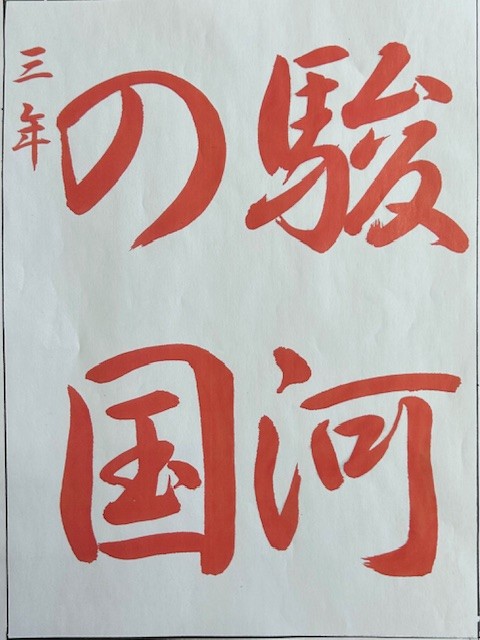 駿河
の国
三年